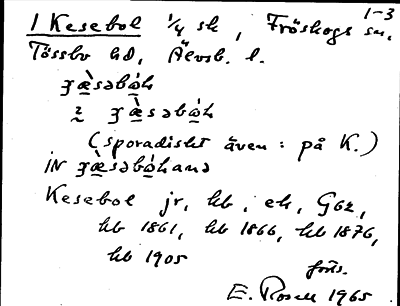 1-3
1 Kesebol 1/4 sk, Fröskogs sn,
Tössbo hd, Älvsb. l.
(sporadiskt även: på K.)
Kesebol jr, kb, ek, G62,
kb 1861, kb 1866, kb 1876,
kb 1905
förs.
E. Rosell 1965